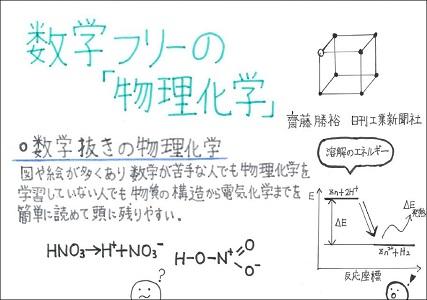 数学フリーの
「物理化学」
齋藤勝裕 日刊工業新聞社
○数学抜きの物理化学
図や絵が多くあり数学が苦手な人でも物理化学を
学習していない人でも物質の構造から電気化学までを
簡単に読めて頭に残りやすい。
HNO₃→H⁺+NO₃⁻
H-O-N⁺
O
O⁻
?
溶解のエネルギー
E
Zn+2H⁺
ΔE
ΔE
発熱
Zn²⁺+H₂
反応座標
!